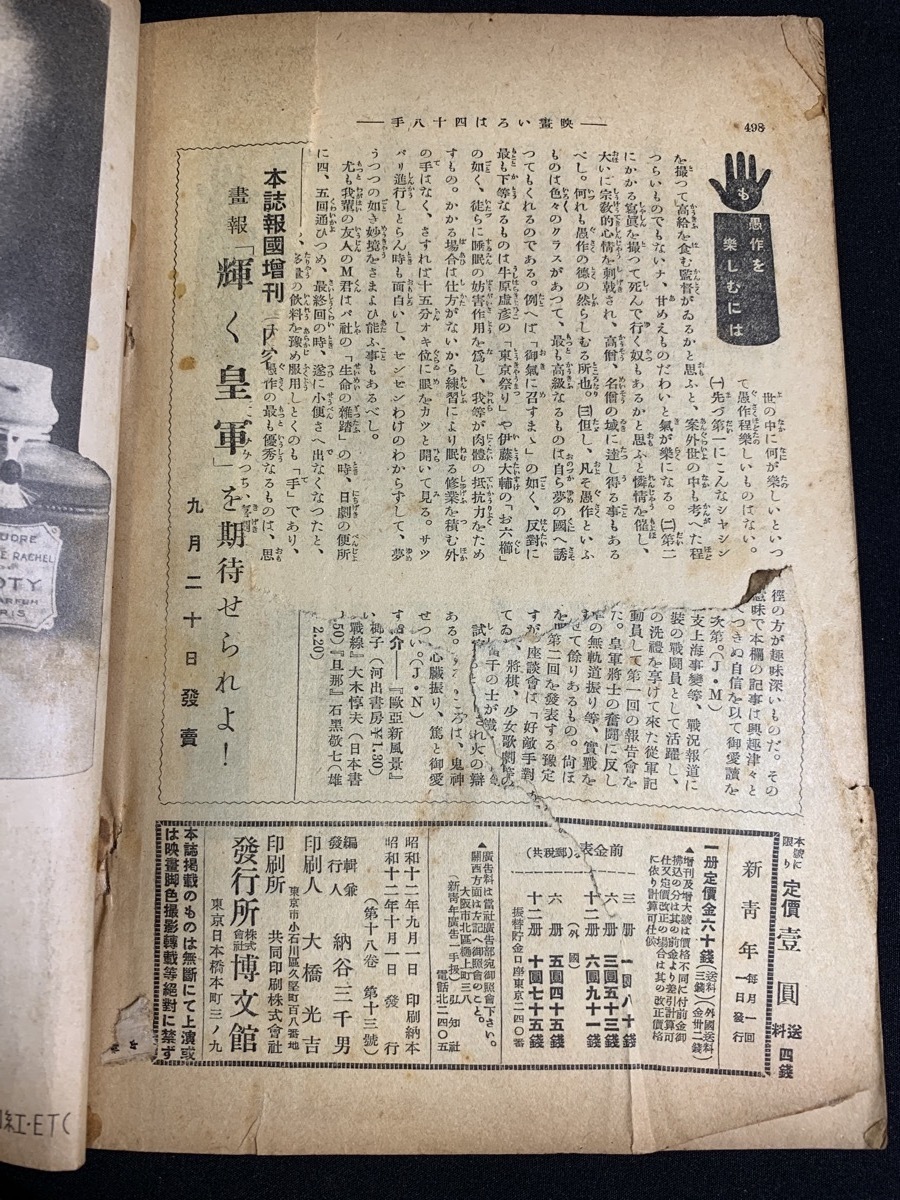 498
映畫いろは四十八手
も
愚作を
樂しむには
世の中に何が樂しいといつ
て愚作程樂しいものはない。
㈠先づ第一にこんなシャシン
を撮つて高給を食む監督がゐるかと思ふと、案外世の中も考へた程
つらいものでもないナ、甘めえものだわいと氣が樂になる。㈡第二
にかかる寫眞を撮つて死んで行く奴もあるかと思ふと憐情を催し、
大いに宗敎的心情を刺戟され、高僧、名僧の域に達し得る事もある
べし。何れも愚作の德の然らしむる所也。㈢但し、凡そ愚作といふ
ものは色々のクラスがあつて、最も高級なるものは自ら夢の國へ誘
つてもくれるのである。例へば「御氣に召すまゝ」の如く、反對に
最も下等なるものは牛原虛彥の「東京祭り」や伊藤大輔の「お六櫛」
の如く、徒らに睡眠の妨害作用を爲し、我等が肉體の抵抗力をため
すもの。かかる場合は仕方がないから練習により眠る修業を積む外
の手はなく、さすれば十五分オキ位に眼をカツと開いて見る。サツ
パリ進行しとらん時も面白いし、ゼンゼンわけのわからずして、夢
うつつの如き妙境をさまよひ能ふ事もあるべし。
尤も我輩の友人のM君はパ社の「生命の雜踏」の時、日劇の便所
に四、五回通ひつめ、最終回の時、遂に小便さへ出なくなつたと、
多量の飲料を豫め服用しとくのも「手」であり、
愚作の最も優秀なるものは、思
本誌報國增刊
畫報「輝く皇軍」を期待せられよ!
九月二十日發賣
徑の方が趣味深いものだ。その
意味で本欄の記事は興趣津々と
つきぬ自信を以て御愛讀を
次第。(J・M)
支上海事變等、戰況報道に
裝の戰鬪員として活躍し、
の洗禮を享けて來た從軍記
動員して第一回の報告會を
た。皇軍將士の奮鬪に反し
軍の無軌道振り等、實戰を
せて餘りあるもの。尙ほ
第二回を發表する豫定
すが、座談會は「好敵手對
てゐ、將棋、少女歌劇等の
され火の辯
ある。
は、鬼神
心臟振り、篤と御愛
せつ。(J・N)
介——『歐亞新風景』
梛子(河出書房¥1.30)
戰線』大木惇夫(日本書
50)『旦那』石黑敬七(雄
2.20)
本號に
限り
定價壹圓
送料四錢
新靑年
每月一回
一日發行
一册定價金六十錢
(送料三錢)
(外國送料金卅二錢)
▲增刊及增大號は價格不同に付前金御
拂込の分は其の前金より差引計算可
仕又定價改正の場合は其の改正價格
に依り計算可仕候
前金表(郵稅共)
三册 一圓八十錢
六册 三圓五十三錢
十二册 六圓九十一錢
(外國)
六册 五圓四十五錢
十二册 十圓七十五錢
振替貯金口座東京二四〇番
▲廣告料は當社廣告部宛御照會下さい。
關西方面は左記へ御照會のこと。
大阪市北區樋上町三八
(新靑年廣告一手扱)弘知社
電話北二四〇五
昭和十二年九月一日 印刷納本
昭和十二年十月一日 發行
(第十八卷 第十三號)
編輯兼
發行人 納谷三千男
印刷人 大橋光吉
東京市小石川區久堅町百八番地
印刷所 共同印刷株式會社
發行所 株式會社 博文館
東京日本橋本町三ノ九
本誌揭載のものは無斷にて上演或
は映畫脚色撮影轉載等絕對に禁ず
RACHEL
COTY
PARIS
紅・ETC